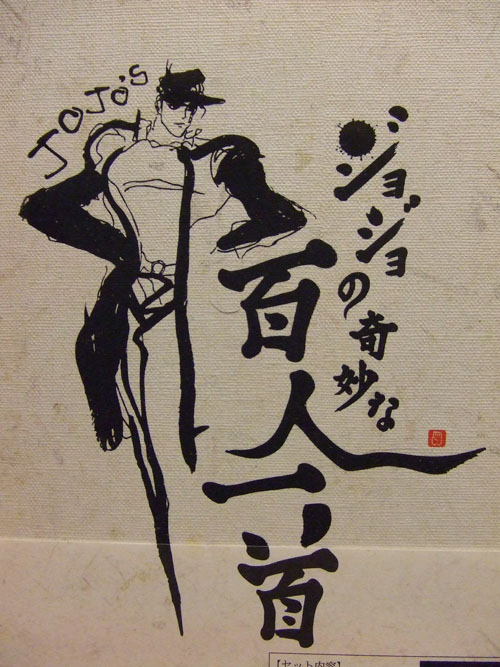 JOJO'S
ジョジョ
の奇妙な
百人一首
【セット内容】